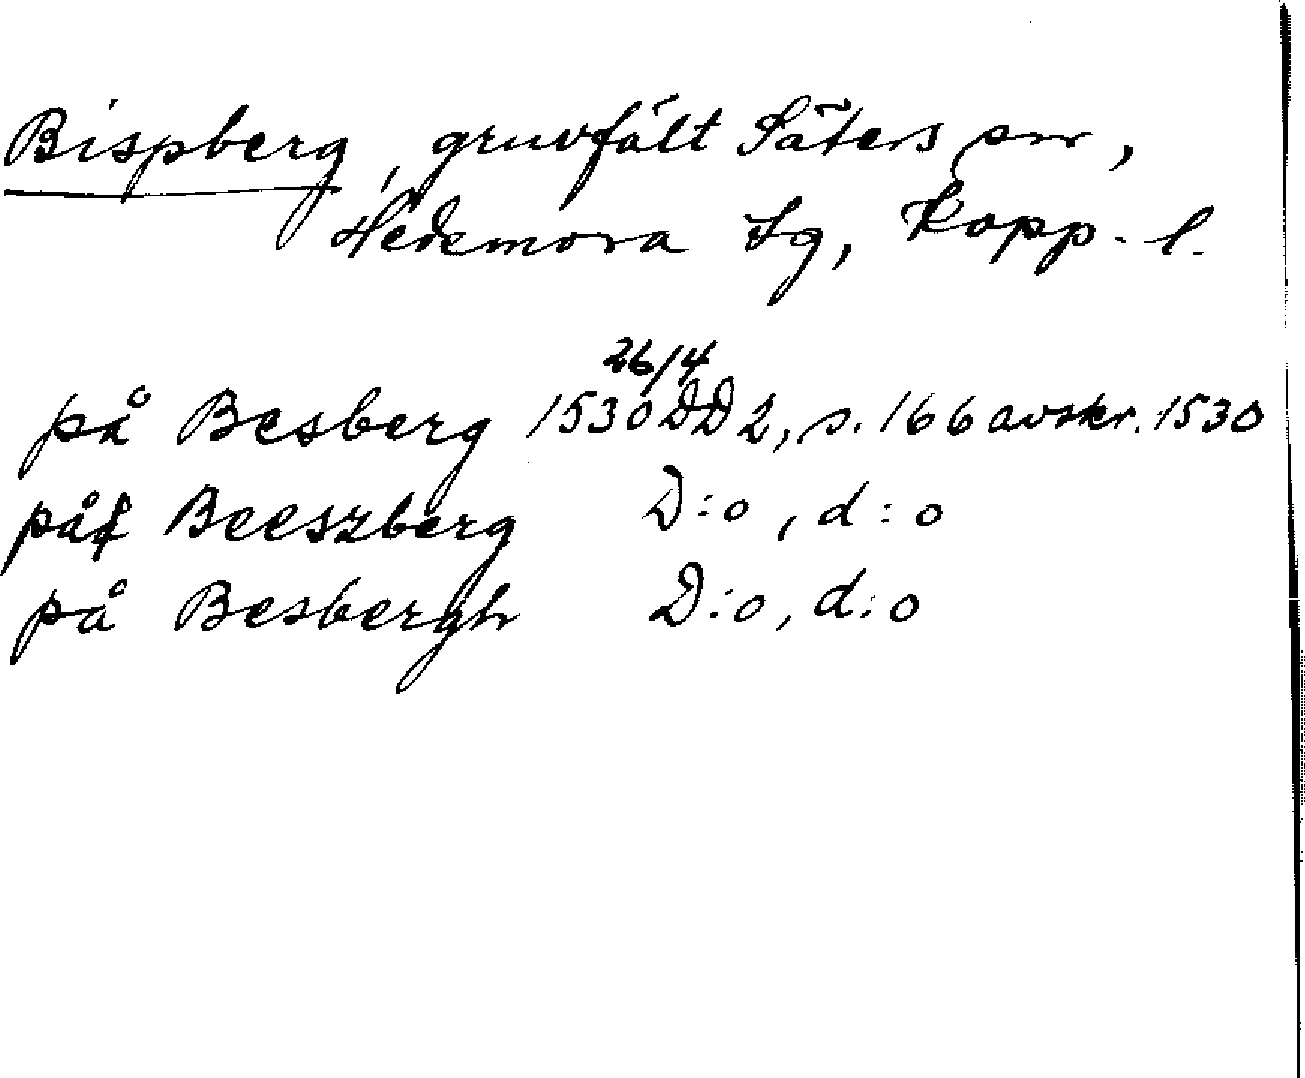 Bispberg, gruvfält Säters sn,
Hedemora tg, Kopp. l.
på Besberg 1530 26/4 DD 2, s. 166 avskr. 1530
på Beeszberg D:o, d:o
på Besbergh D:o, d:o